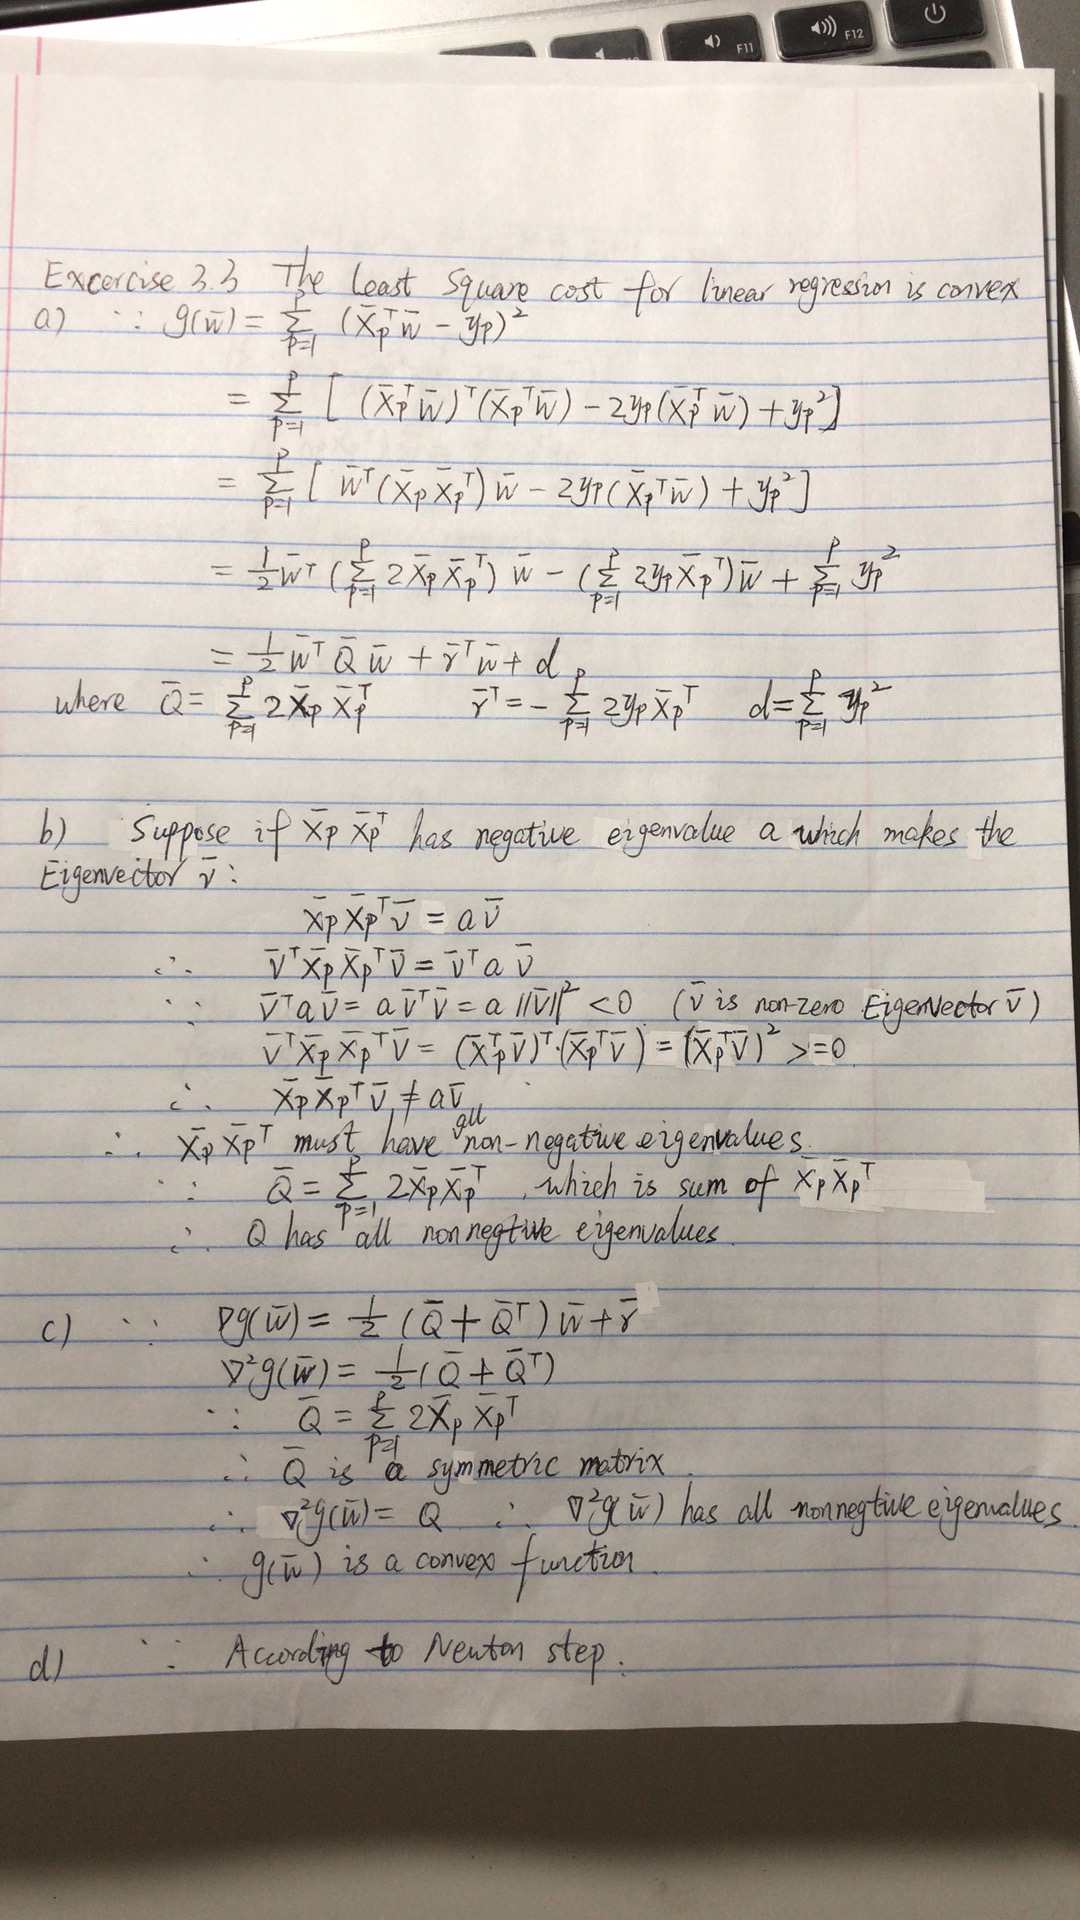 F11
F12
Excercise 3.3 The Least Square cost for linear regression is convex
a) ∵ g(w̄) = Σ_{p=1}^{P} (x̄_p^T w̄ − y_p)^2
= Σ_{p=1}^{P} [ (x̄_p^T w̄)^T (x̄_p^T w̄) − 2y_p(x̄_p^T w̄) + y_p^2 ]
= Σ_{p=1}^{P} [ w̄^T (x̄_p x̄_p^T) w̄ − 2y_p(x̄_p^T w̄) + y_p^2 ]
= 1/2 w̄^T (Σ_{p=1}^{P} 2x̄_p x̄_p^T) w̄ − (Σ_{p=1}^{P} 2y_p x̄_p^T) w̄ + Σ_{p=1}^{P} y_p^2
= 1/2 w̄^T Q̄ w̄ + r̄^T w̄ + d
where Q̄ = Σ_{p=1}^{P} 2x̄_p x̄_p^T r̄^T = − Σ_{p=1}^{P} 2y_p x̄_p^T d = Σ_{p=1}^{P} y_p^2
b) Suppose if x̄_p x̄_p^T has negative eigenvalue a which makes the
Eigenvector v̄:
x̄_p x̄_p^T v̄ = a v̄
∴ v̄^T x̄_p x̄_p^T v̄ = v̄^T a v̄
∵ v̄^T a v̄ = a v̄^T v̄ = a ||v̄||^2 < 0 (v̄ is non-zero Eigenvector v̄)
v̄^T x̄_p x̄_p^T v̄ = (x̄_p^T v̄)^T · (x̄_p^T v̄) = (x̄_p^T v̄)^2 >=0
∴ x̄_p x̄_p^T v̄ ≠ a v̄
∴ x̄_p x̄_p^T must have all non-negative eigenvalues.
∵ Q̄ = Σ_{p=1}^{P} 2x̄_p x̄_p^T, which is sum of x̄_p x̄_p^T
∴ Q has all nonnegtive eigenvalues.
c) ∵ ∇g(w̄) = 1/2 (Q̄ + Q̄^T) w̄ + r̄
∇^2 g(w̄) = 1/2 (Q̄ + Q̄^T)
∵ Q̄ = Σ_{p=1}^{P} 2x̄_p x̄_p^T
∴ Q̄ is a symmetric matrix.
∴ ∇^2 g(w̄) = Q ∴ ∇^2 g(w̄) has all nonnegtive eigenvalues.
∴ g(w̄) is a convex function.
d) ∵ According to Newton step.